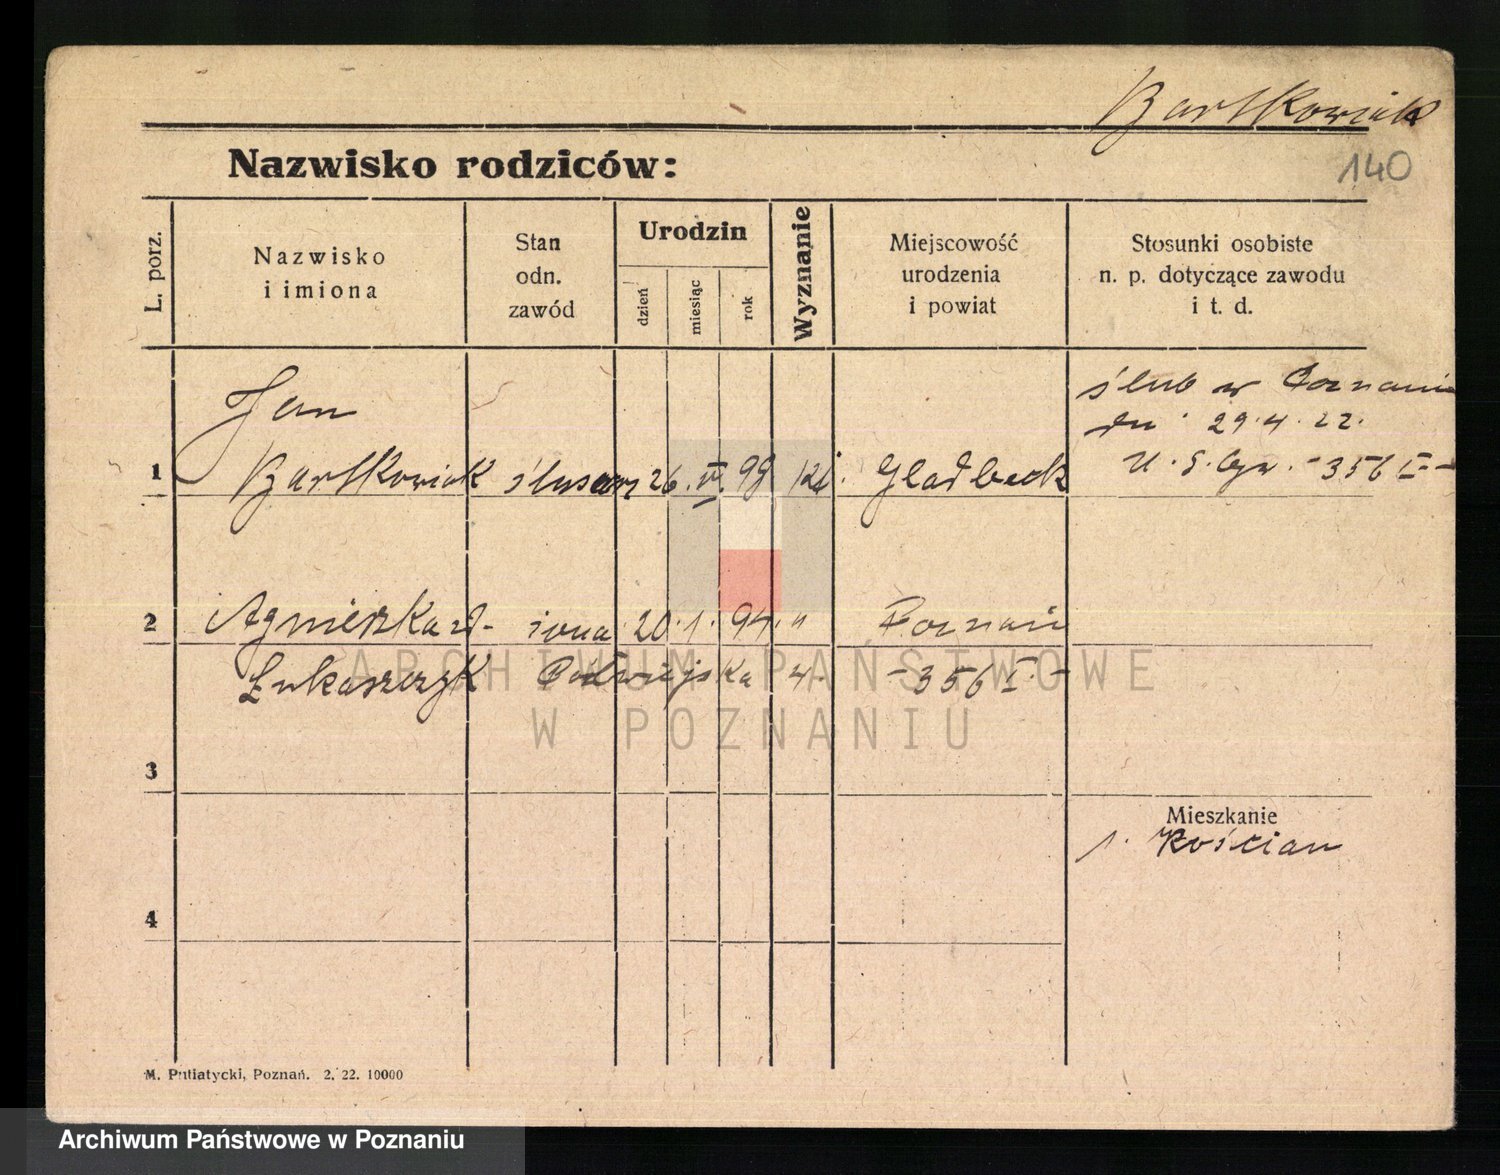 Bartkowiak
140
Nazwisko rodziców:
L. porz.
Nazwisko
i imiona
Stan
odn.
zawód
Urodzin
dzień
miesiąc
rok
Wyznanie
Miejscowość
urodzenia
i powiat
Stosunki osobiste
n. p. dotyczące zawodu
i t. d.
ślub w Poznaniu
dn. 29.4.22.
U. S. - 356 I -
Jan
1 Bartkowiak ślusarz 26. 99 kt. Gladbeck
2 Agnieszka zd. żona 20. 1. 94. " Poznań
Łukaszczyk 4. - 356 I -
ARCHIWUM PAŃSTWOWE
W POZNANIU
3
Mieszkanie
1. Kościan
4
M. Putiatycki, Poznań. 2. 22. 10000
Archiwum Państwowe w Poznaniu